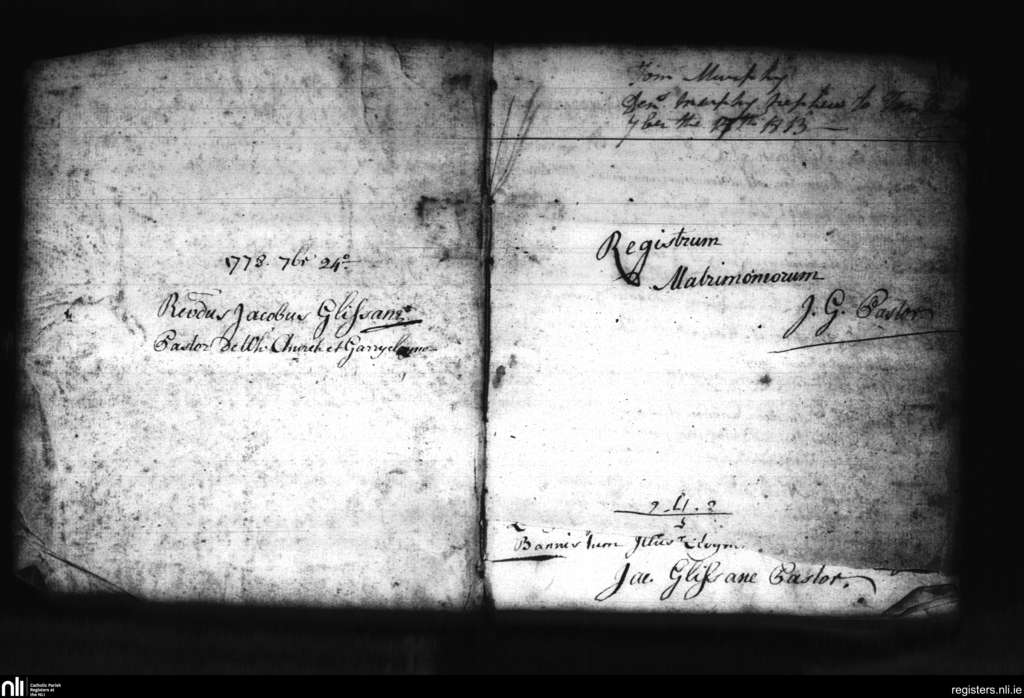 1778. 7br 24o
Revdus Jacobus Glissane
Pastor de Wh. Church et Garryclo
Tom Murphy
Murphy nephew to Tom
7ber the 17th 1813
Registrum
Matrimoniorum
J. G. Pastor
2.4.2
Bannis tum
Jac. Glissane Pastor
nli Catholic Parish
Registers at
the NLI
registers.nli.ie